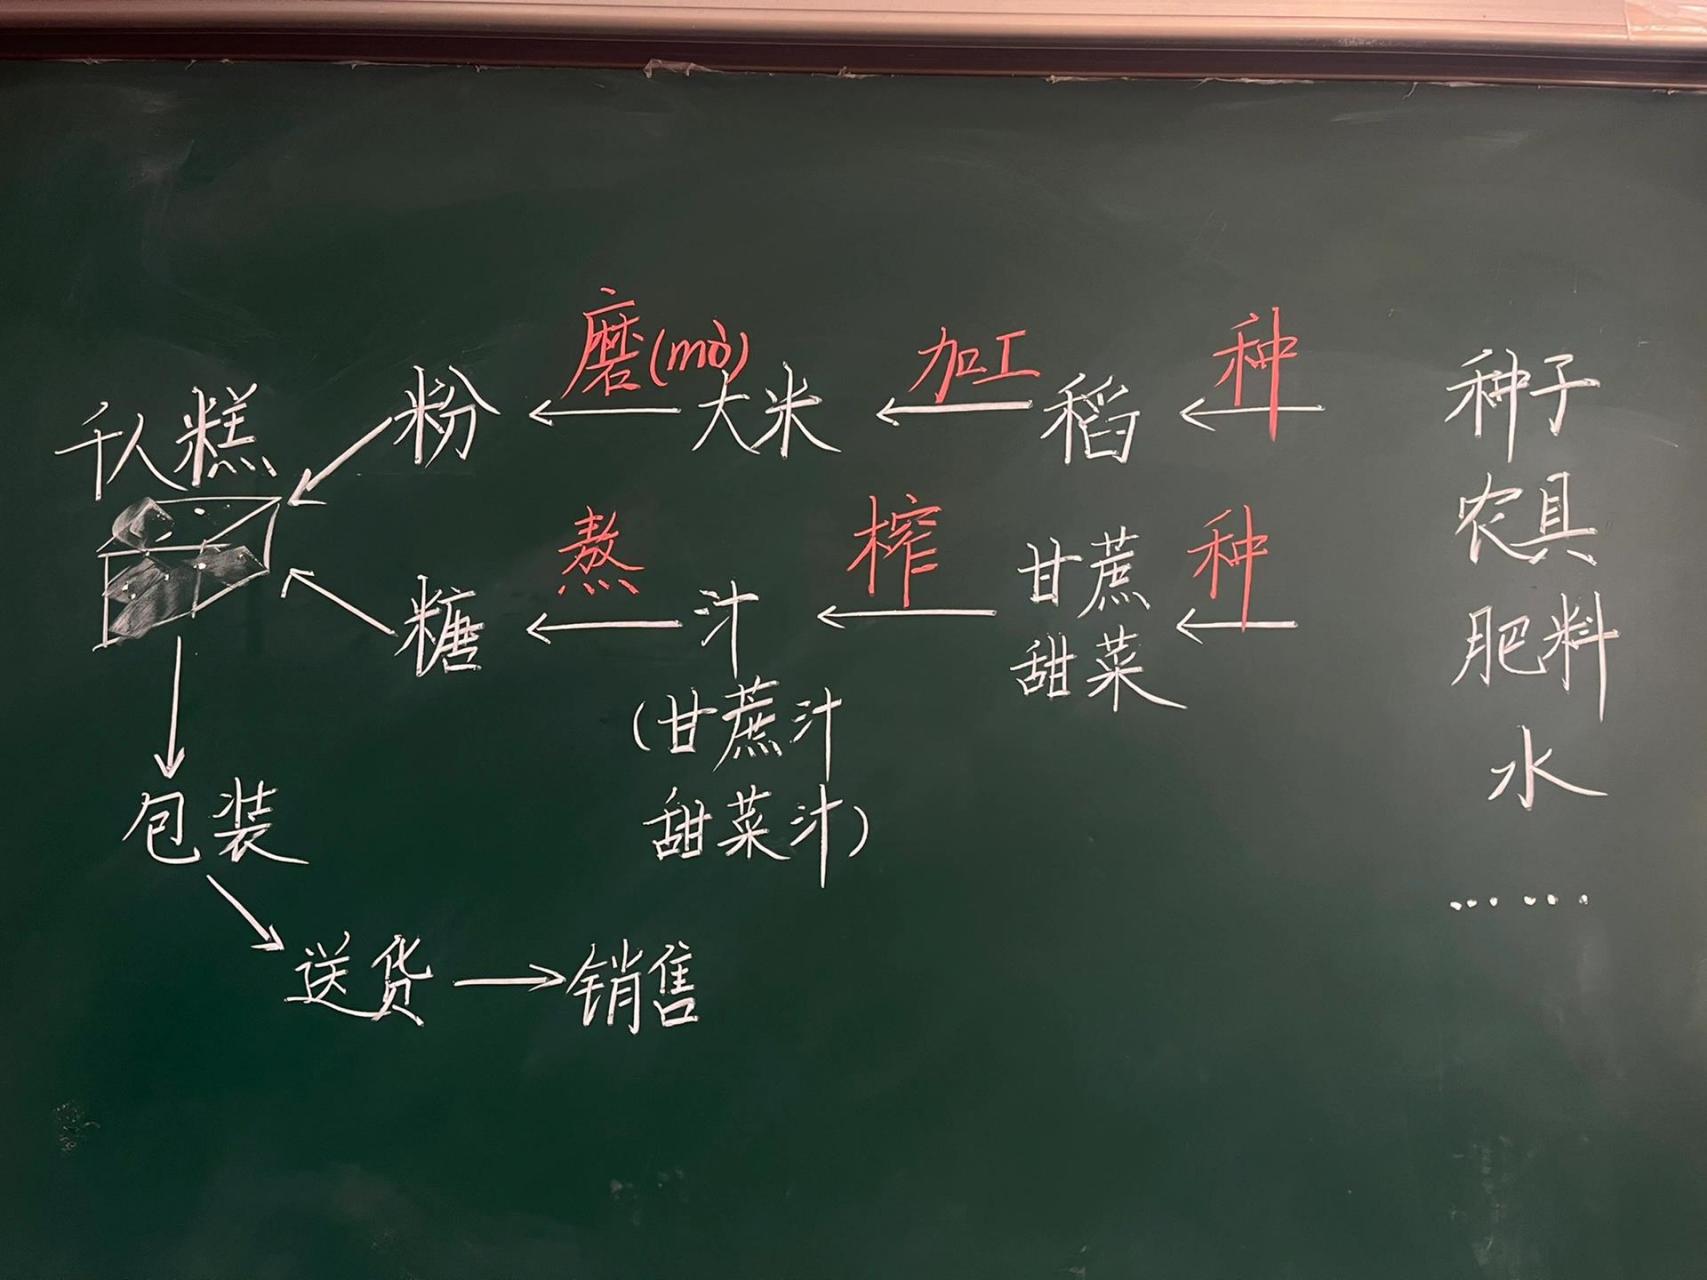 千人糕 粉 磨(mò) 大米 加工 稻 种 种子
农具
糖 熬 汁 榨 甘蔗 种 肥料
甜菜
(甘蔗汁 水
甜菜汁) ……
包装
送货 销售